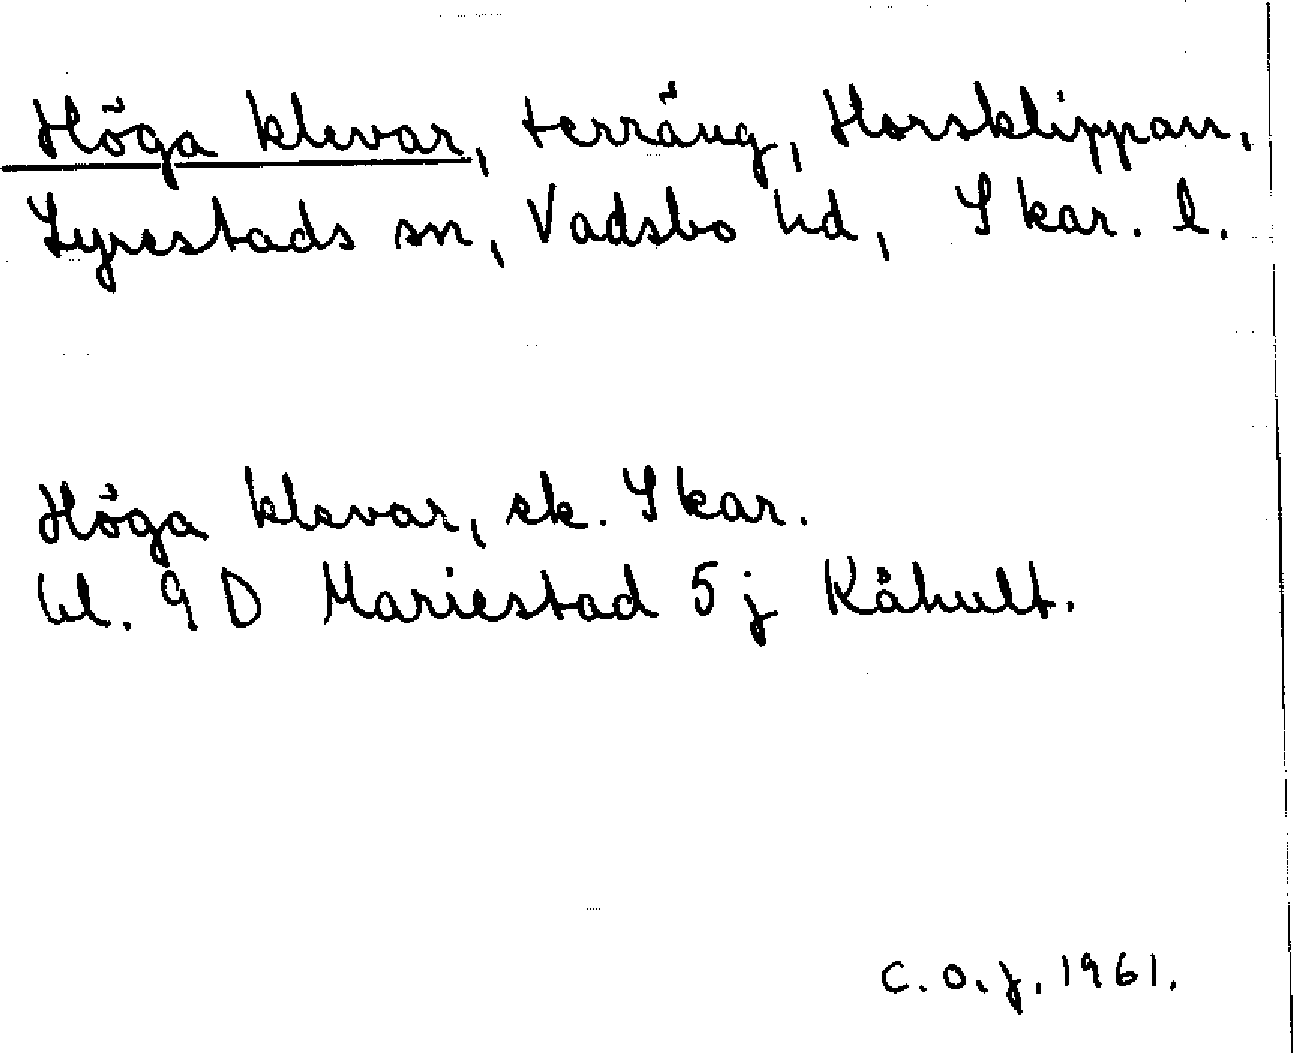 Höga klevar, terräng, Horsklippan,
Lyrestads sn, Vadsbo hd, Skar. l.
Höga klevar, ek. Skar.
bl. 9 D Mariestad 5 j Kåhult.
C. O. J. 1961.